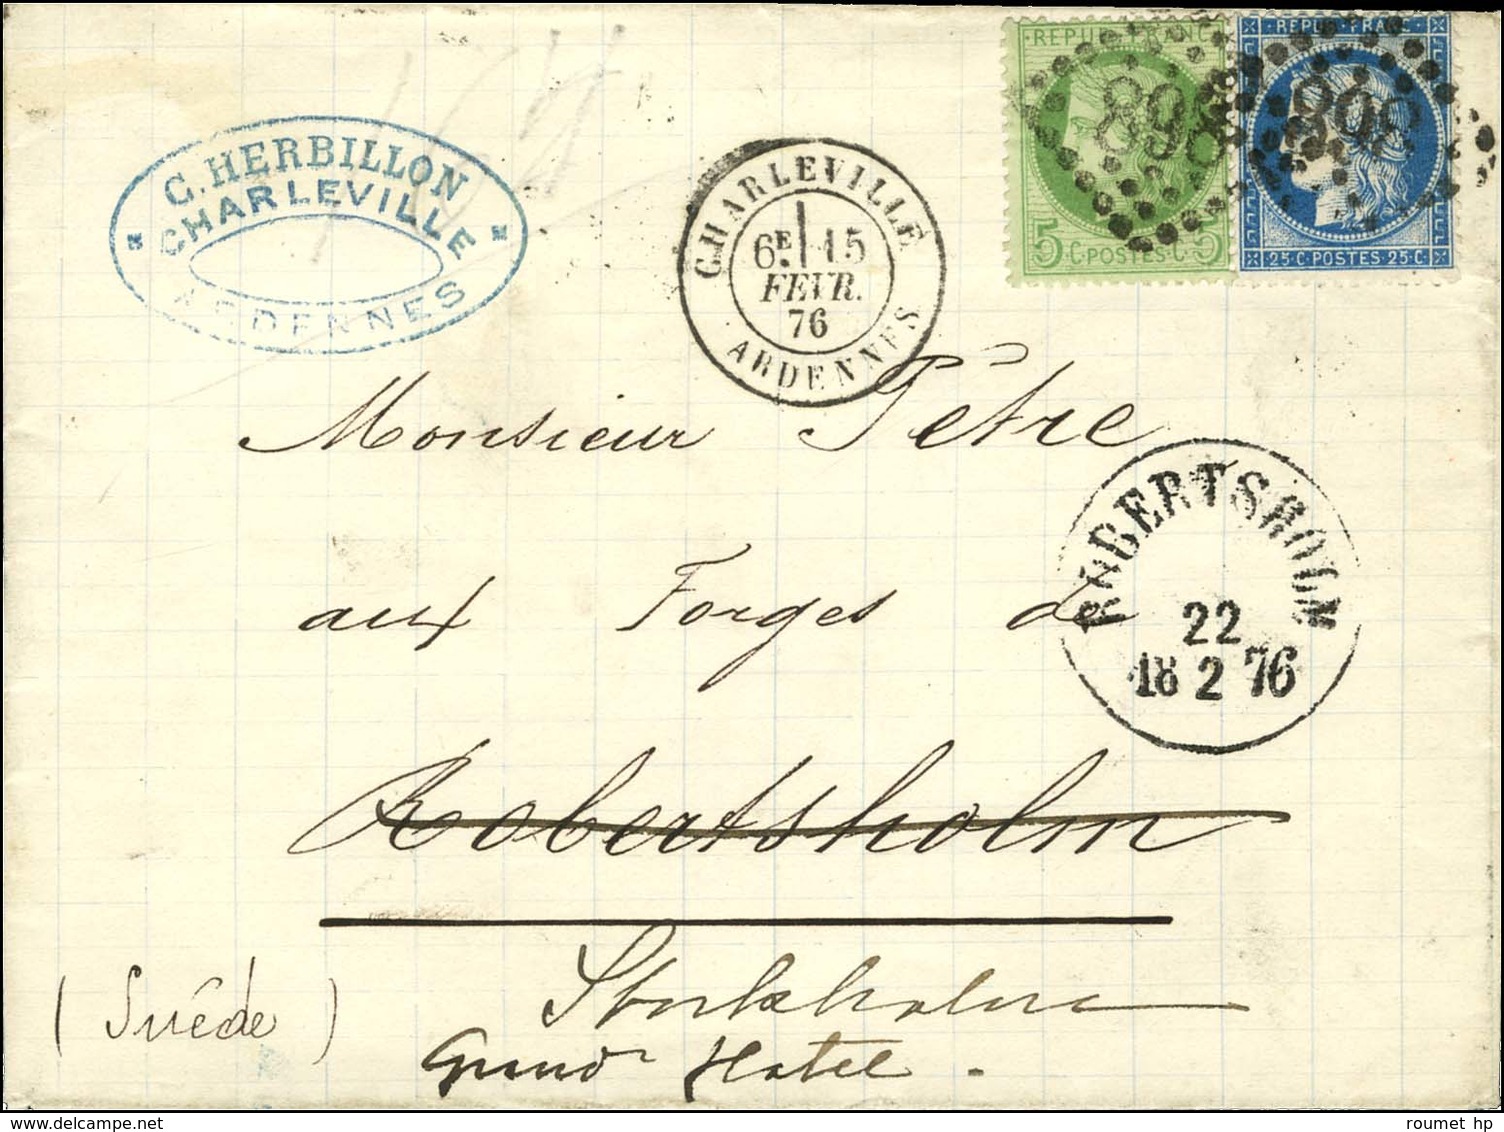 REPUB. FRANC.
REPUB. FRANC.
898
898
5 C. POSTES C. 5
25 C. POSTES 25 C.
C. HERBILLON
CHARLEVILLE
ARDENNES
CHARLEVILLE
6E 15
FEVR.
76
ARDENNES
Monsieur Pêtre
aux Forges de
Robertsholm
ROBERTSHOLM
22
18 2 76
Stockholm
(Suède)
Grand Hotel.
roumet hp